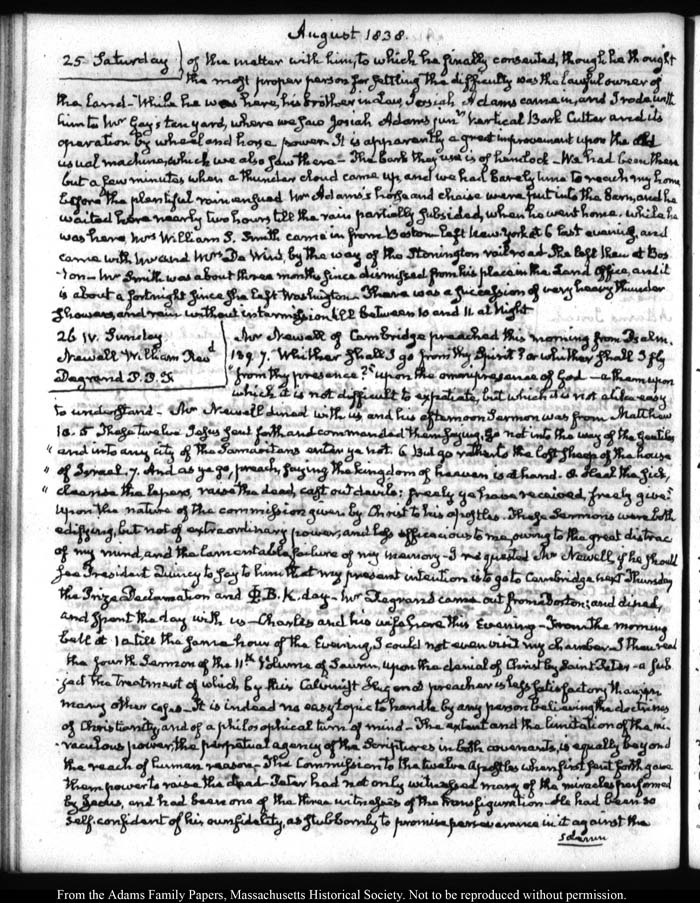 August 1838.
25 Saturday of the matter with him, to which he finally consented, though he thought
the most proper person for settling the difficulty was the lawful owner of
the Land — While he was here, his brother in Law, Josiah Adams came in, and I rode with
him to Mr Gay's tan yard, where we saw Josiah Adams junr Vertical Bark Cutter and its
operation by wheel and horse power. It is apparently a great improvement upon the old
usual machine, which we also saw there — The bark they use is of hemlock — We had been there
but a few minutes when a thunder cloud came up, and we had barely time to reach my home
before the plentiful rain ensued Mr Adams's horse and chaise were put into the barn, and he
waited here nearly two hours till the rain partially subsided, when he went home. While he
was here, Mrs William S. Smith came in from Boston left New York at 6 last evening, and
came with Mr and Mrs De Wint, by the way of the Stonington rail road She left them at Bos-
-ton — Mr Smith was about three months since dismissed from his place in the Land Office, and it
is about a fortnight since she left Washington — There was a succession of very heavy thunder
showers, and rain without intermission till between 10 and 11 at Night
26 IV. Sunday Mr Newell of Cambridge preached this morning from Psalm.
Newell William Revd 139. 7. Whither shall I go from thy Spirit? or whither shall I fly
Degrand P. B. F "from thy presence?" upon the omnipresence of God — a theme upon
which it is not difficult to expatiate, but which it is not alike easy
to understand — Mr Newell dined with us and his afternoon Sermon was from Matthew
10. 5 These twelve Jesus sent forth and commanded them saying, Go not into the way of the Gentiles
" and into any city of the Samaritans enter ye not. 6 But go rather to the lost sheep of the house
" of Israel. 7. And as ye go, preach, saying the kingdom of heaven is at hand. 8 Heal the sick,
" cleanse the lepers, raise the dead, cast out devils: freely ye have received, freely give"
upon the nature of the commission given by Christ to his apostles. These Sermons were both
edifying, but not of extraordinary power, and less efficacious to me, owing to the great distrac
of my mind, and the lamentable failure of my memory — I requested Mr Newell, if he should
see President Quincy to say to him that my present intention is to go to Cambridge next Thursday
the Prize Declamation and Φ. B. K. day — Mr Degrand came out from Boston; and dined,
and spent the day with us — Charles and his wife here this Evening — From the morning
bell at 10 till the same hour of the Evening, I could not even visit my chamber. I then read
the fourth Sermon of the 11th Volume of Saurin, upon the denial of Christ by Saint Peter — a sub
ject the treatment of which by this Calvinist Hugenot preacher is less satisfactory than in
many other cases — It is indeed no easy topic to handle by any person believing the doctrines
of Christianity, and of a philosophical turn of mind — The extent and the limitation of the mi-
-raculous power, the perpetual agency of the Scriptures in both covenants, is equally beyond
the reach of human reason — The Commission to the twelve Apostles when first sent forth gave
them power to raise the dead Peter had not only witnessed many of the miracles performed
by Jesus, and had been one of the three witnesses of the transfiguration — He had been so
self-confident of his own fidelity, as stubbornly to promise perseverance in it against the
solemn
From the Adams Family Papers, Massachusetts Historical Society. Not to be reproduced without permission.